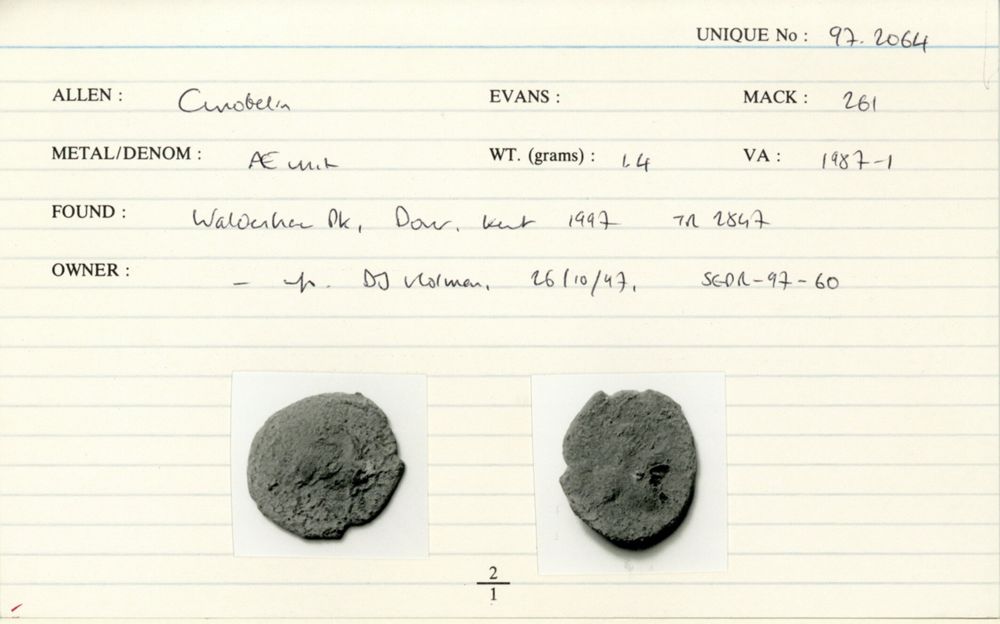 UNIQUE No : 97.2064
ALLEN : Cunobelin EVANS : MACK : 261
METAL/DENOM : Æ unit WT. (grams) : 1.4 VA : 1987-1
FOUND : Pk, Dover, Kent 1997 TR 2847
OWNER : - DJ Holman, 26/10/97, SEDR-97-60
2
1